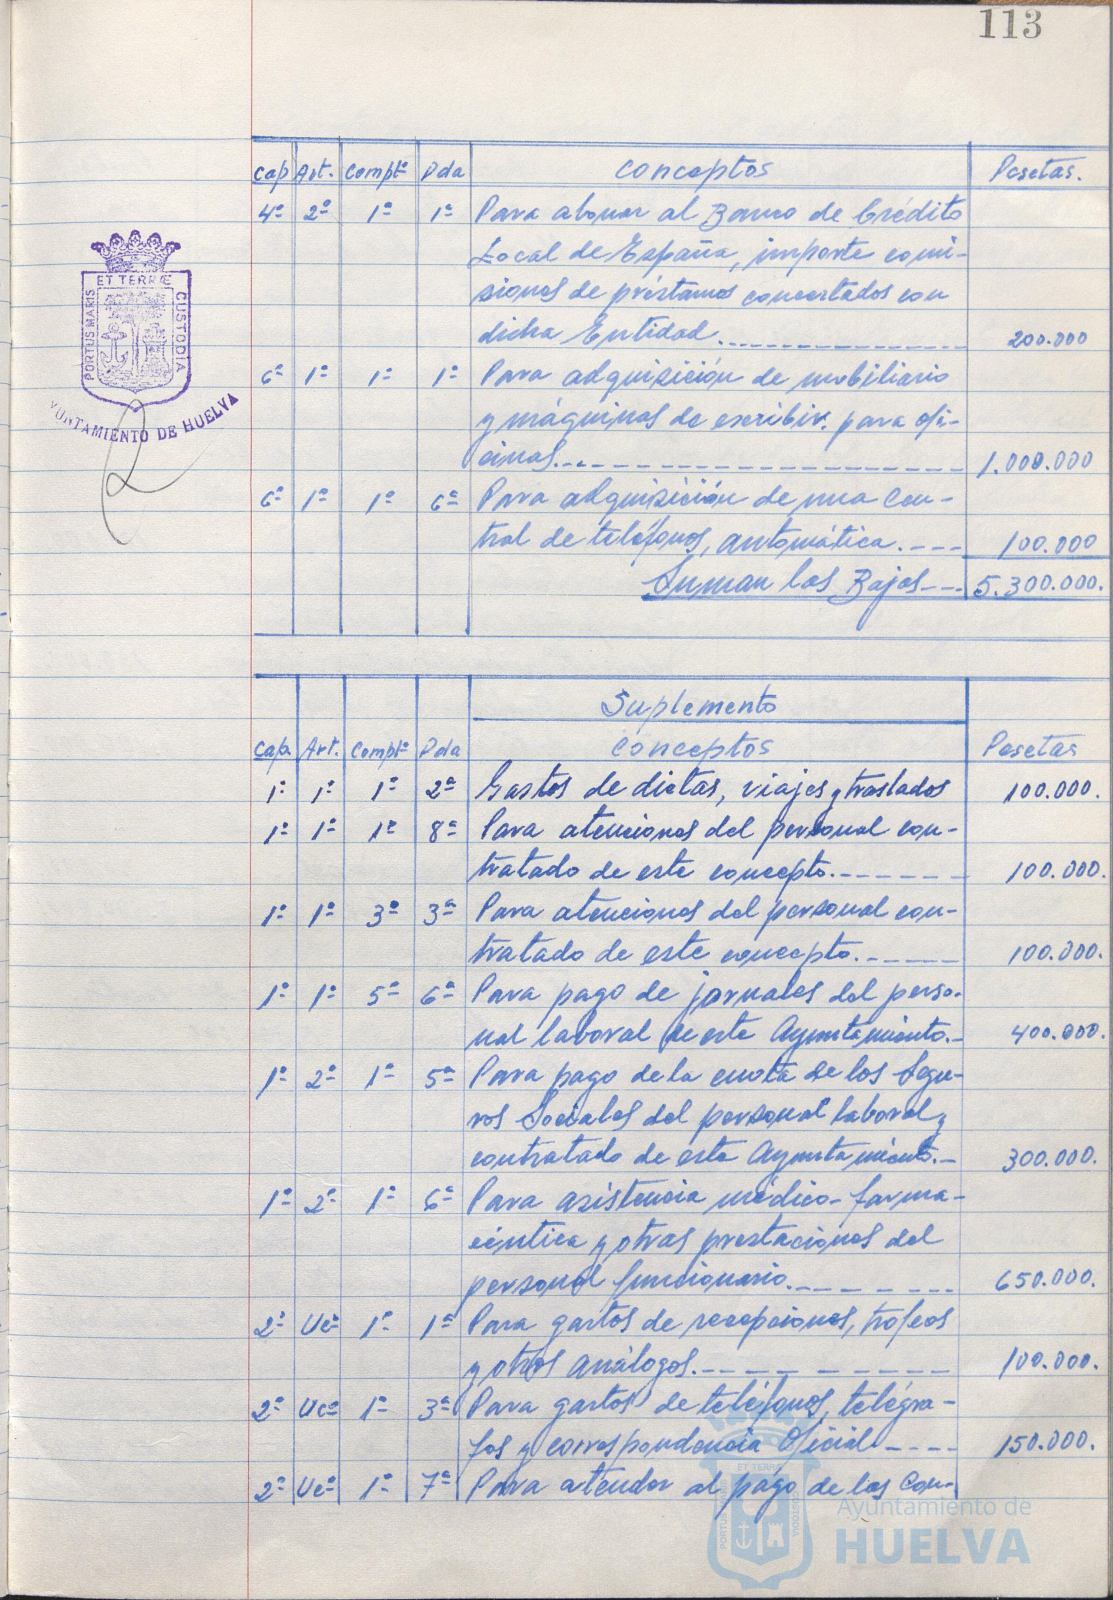 113
Cap Art. Comptº Pda Conceptos Pesetas.
4º 2º 1º 1º Para abonar al Banco de Crédito
Local de España, importe comi-
siones de préstamos concertados con
dicha Entidad. 200.000
6º 1º 1º 1º Para adquisición de mobiliario
y máquinas de escribir para ofi-
cinas. 1.000.000
6º 1º 1º 6º Para adquisición de una cen-
tral de teléfonos, automática. 100.000
Suman las Bajas 5.300.000.
ET TERRÆ
PORTUS MARIS
CUSTODIA
YUNTAMIENTO DE HUELVA
Suplemento
Cap. Art. Comptº Pda Conceptos Pesetas
1º 1º 1º 2ª Gastos de dietas, viajes y traslados 100.000.
1º 1º 1º 8ª Para atenciones del personal con-
tratado de este concepto. 100.000.
1º 1º 3º 3ª Para atenciones del personal con-
tratado de este concepto. 100.000.
1º 1º 5º 6ª Para pago de jornales del perso-
nal laboral de este Ayuntamiento. 400.000.
1º 2º 1º 5ª Para pago de la cuota de los Segu-
ros Sociales del personal laboral y
contratado de este Ayuntamiento. 300.000.
1º 2º 1º 6ª Para asistencia médico-farma-
céutica y otras prestaciones del
personal funcionario. 650.000.
2º Ucº 1º 1ª Para gastos de recepciones, trofeos
y otros análogos. 100.000.
2º Ucº 1º 3ª Para gastos de teléfonos, telégra-
fos y correspondencia Oficial 150.000.
2º Ucº 1º 7ª Para atender al pago de las Con-
ET TERRÆ
PORTUS MARIS
CUSTODIA
Ayuntamiento de
HUELVA